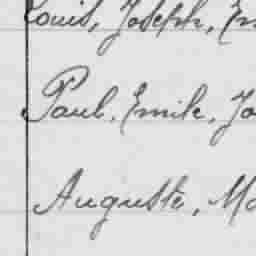 Louis, Joseph, Em
Paul, Emile, Jo
Auguste, Ma